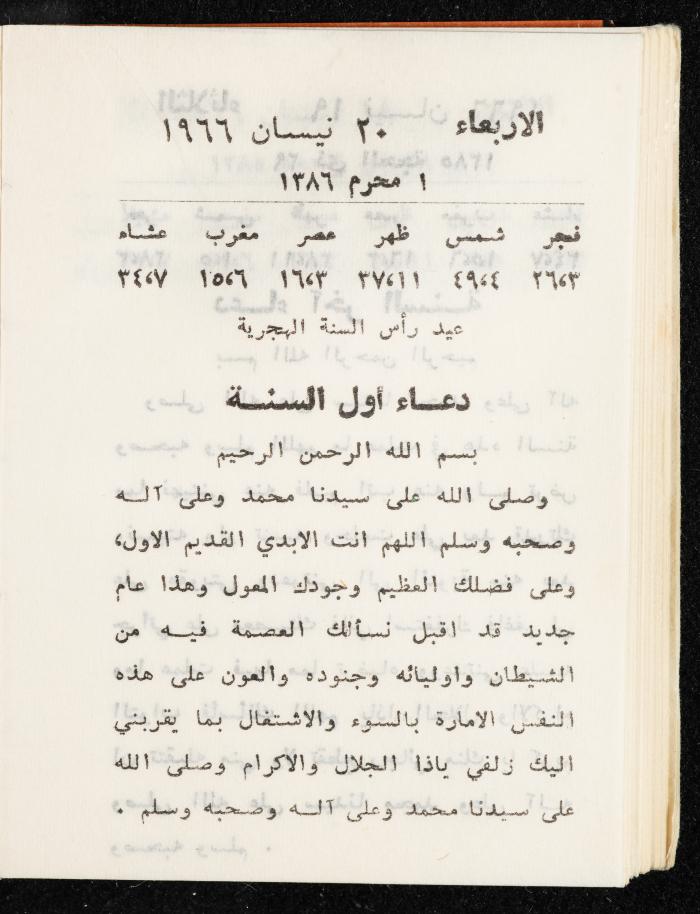 الاربعاء ٢٠ نيسان ١٩٦٦
١ محرم ١٣٨٦
فجر شمس ظهر عصر مغرب عشاء
٣،٢٦ ٤،٤٩ ١١،٣٧ ٣،١٦ ٦،١٥ ٧،٣٤
عيد رأس السنة الهجرية
دعـــاء أول السنـــة
بسم الله الرحمن الرحيم
وصلى الله على سيدنا محمد وعلى آلــه
وصحبه وسلم اللهم انت الابدي القديم الاول،
وعلى فضلك العظيم وجودك المعول وهذا عام
جديد قد اقبل نسألك العصمة فيــه من
الشيطان واوليائه وجنوده والعون على هذه
النفس الامارة بالسوء والاشتغال بما يقربني
اليك زلفي ياذا الجلال والاكرام وصلى الله
على سيدنا محمد وعلى آلــه وصحبه وسلم .